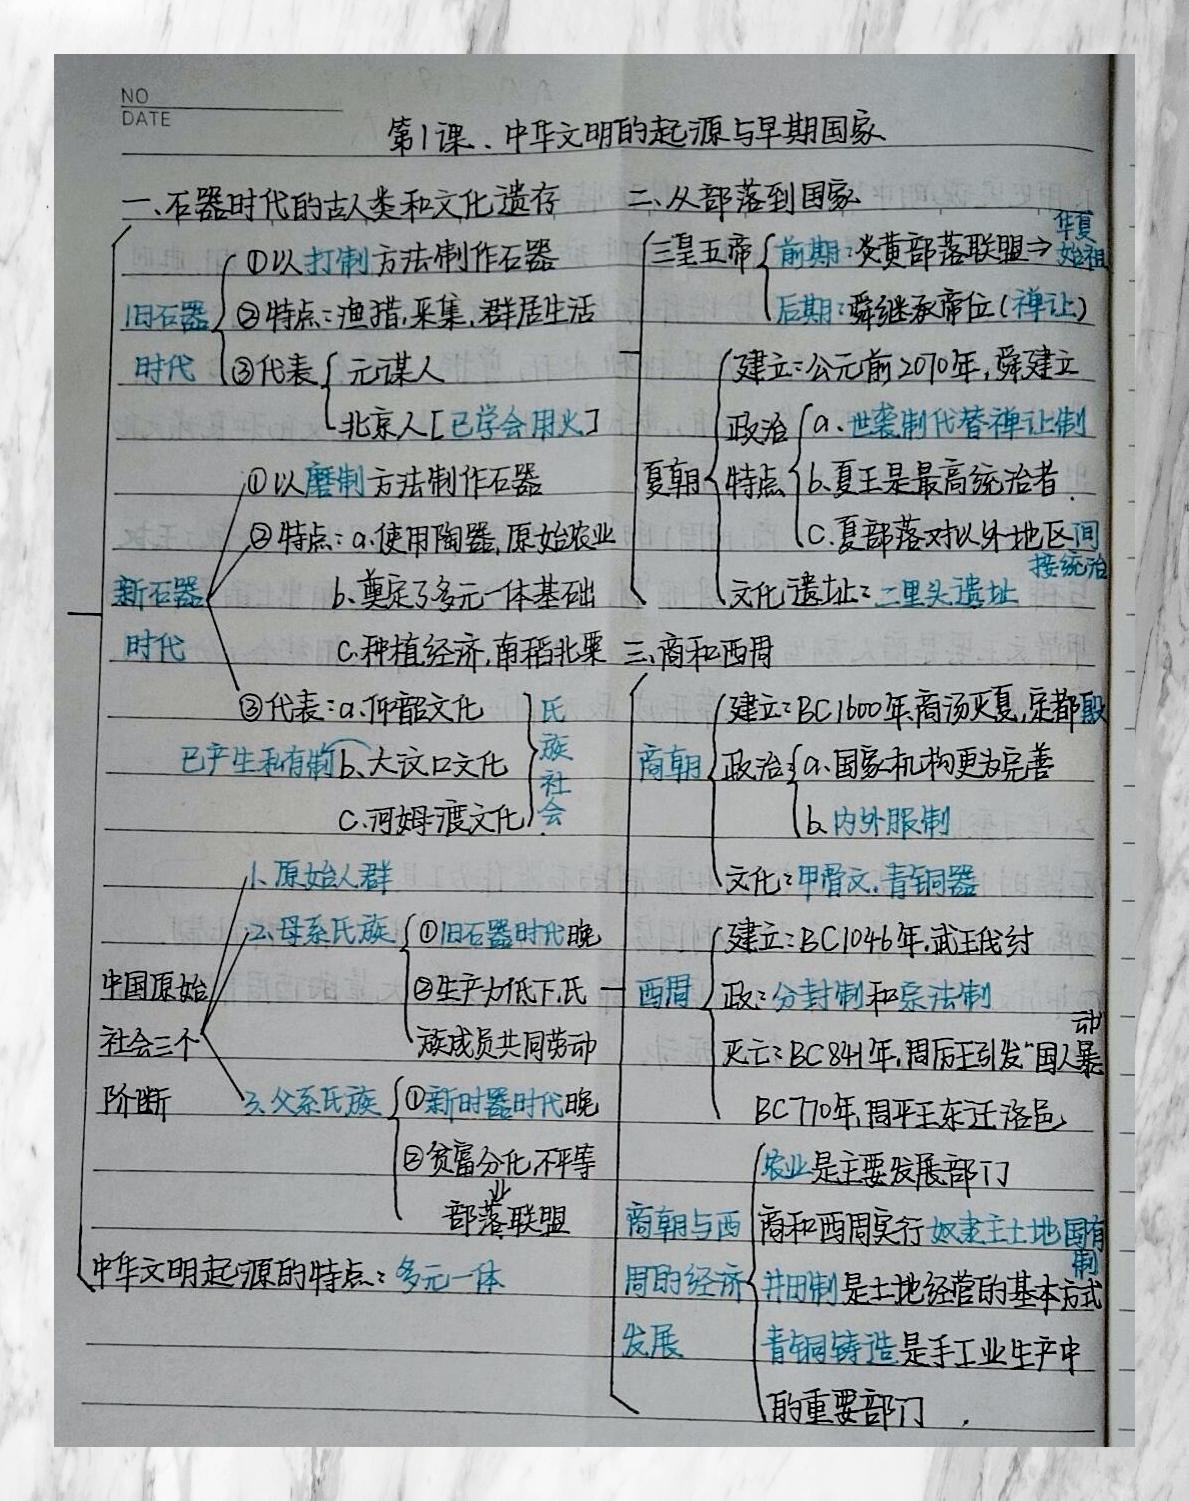 NO
DATE
第1课、中华文明的起源与早期国家
一、石器时代的古人类和文化遗存
旧石器时代
①以打制方法制作石器
②特点:渔猎,采集,群居生活
③代表
元谋人
北京人[已学会用火]
新石器时代
①以磨制方法制作石器
②特点:a.使用陶器,原始农业
b.奠定了多元一体基础
c.种植经济,南稻北粟
③代表:a.仰韶文化
已产生私有制 b.大汶口文化
c.河姆渡文化
氏族社会
中国原始社会三个阶断
1.原始人群
2.母系氏族
①旧石器时代晚
②生产力低下,氏
族成员共同劳动
3.父系氏族
①新时器时代晚
②贫富分化,不平等
部落联盟
中华文明起源的特点:多元一体
二、从部落到国家
三皇五帝
前期:炎黄部落联盟⇒华夏始祖
后期:舜继承帝位(禅让)
夏朝
建立:公元前2070年,舜建立
政治特点
a.世袭制代替禅让制
b.夏王是最高统治者.
c.夏部落对以外地区间接统治
文化遗址:二里头遗址
三、商和西周
商朝
建立:BC1600年,商汤灭夏,定都殷
政治:a.国家机构更为完善
b.内外服制
文化:甲骨文.青铜器
西周
建立:BC1046年,武王伐纣
政:分封制和宗法制
灭亡:BC841年,周厉王引发"国人暴动
BC770年,周平王东迁洛邑
商朝与西周的经济发展
农业是主要发展部门
商和西周实行奴隶主土地国有制
井田制是土地经营的基本方式
青铜铸造是手工业生产中
的重要部门.